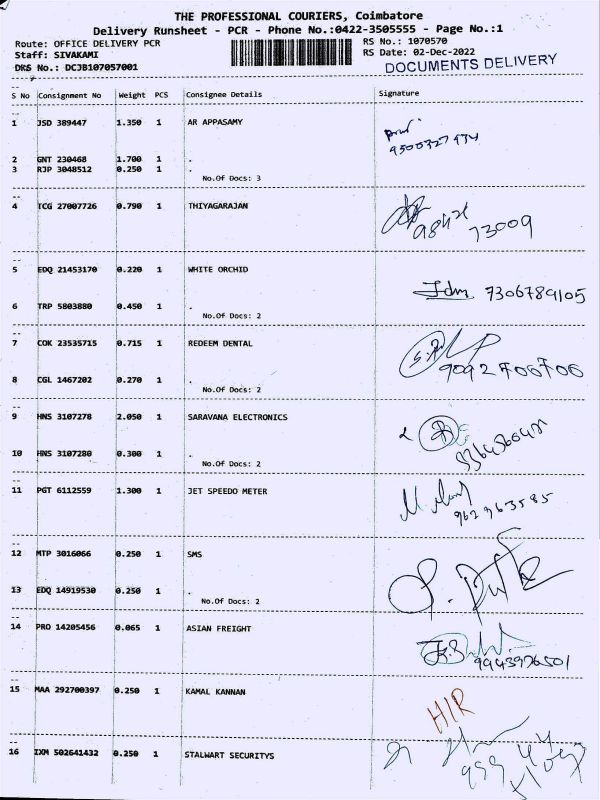 THE PROFESSIONAL COURIERS, Coimbatore
Delivery Runsheet - PCR - Phone No.:0422-3505555 - Page No.:1
Route: OFFICE DELIVERY PCR RS No.: 1070570
Staff: SIVAKAMI RS Date: 02-Dec-2022
DRS No.: DCJB107057001 DOCUMENTS DELIVERY
S No Consignment No Weight PCS Consignee Details Signature
1 JSD 389447 1.350 1 AR APPASAMY
9500327434
2 GNT 230468 1.700 1 .
3 RJP 3048512 0.250 1 .
No.Of Docs: 3
4 TCG 27007726 0.790 1 THIYAGARAJAN
73009
5 EDQ 21453170 0.220 1 WHITE ORCHID
7306789105
6 TRP 5803880 0.450 1 .
No.Of Docs: 2
7 COK 23535715 0.715 1 REDEEM DENTAL
9092706706
8 CGL 1467202 0.270 1 .
No.Of Docs: 2
9 HNS 3107278 2.050 1 SARAVANA ELECTRONICS
10 HNS 3107280 0.300 1 .
No.Of Docs: 2
11 PGT 6112559 1.300 1 JET SPEEDO METER
12 MTP 3016066 0.250 1 SMS
13 EDQ 14919530 0.250 1 .
No.Of Docs: 2
14 PRO 14205456 0.065 1 ASIAN FREIGHT
9943976501
15 MAA 292700397 0.250 1 KAMAL KANNAN
HIR
16 IXM 502641432 0.250 1 STALWART SECURITYS